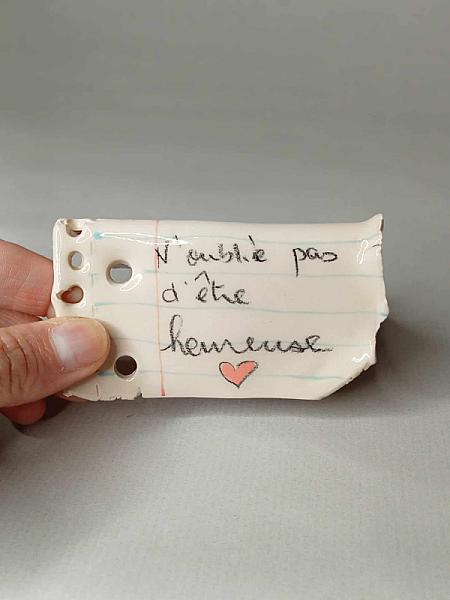 N'oublie pas
d'être
heureuse